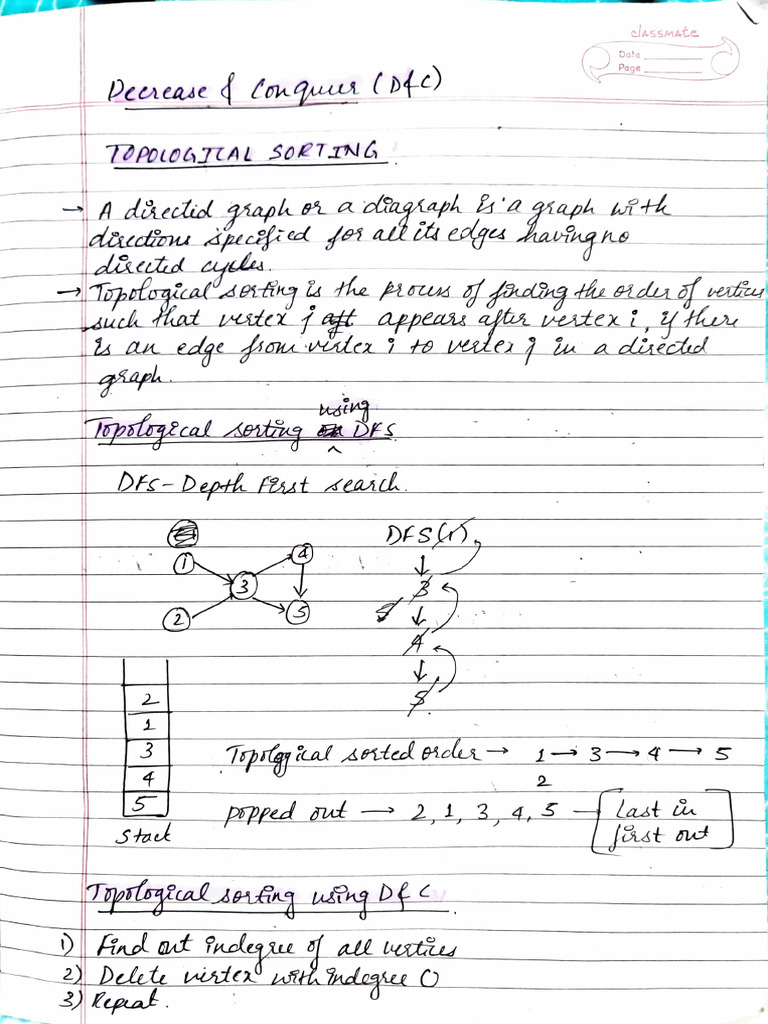 classmate
Date
Page
Decrease & Conquer (D&C)
TOPOLOGICAL SORTING
→ A directed graph or a diagraph is a graph with
directions specified for all its edges having no
directed cycles.
→ Topological sorting is the process of finding the order of vertices
such that vertex j aft appears after vertex i, if there
is an edge from vertex i to vertex j in a directed
graph.
using
Topological sorting DFS
DFS - Depth First search.
1
4
3
2
5
DFS(1)
↓
3
5
↓
4
↓
5
2
1
3
4
5
Stack
Topological sorted order → 1 → 3 → 4 → 5
2
popped out → 2, 1, 3, 4, 5 — [Last in
first out]
Topological sorting using D&C
1) Find out indegree of all vertices
2) Delete vertex with indegree 0
3) Repeat.